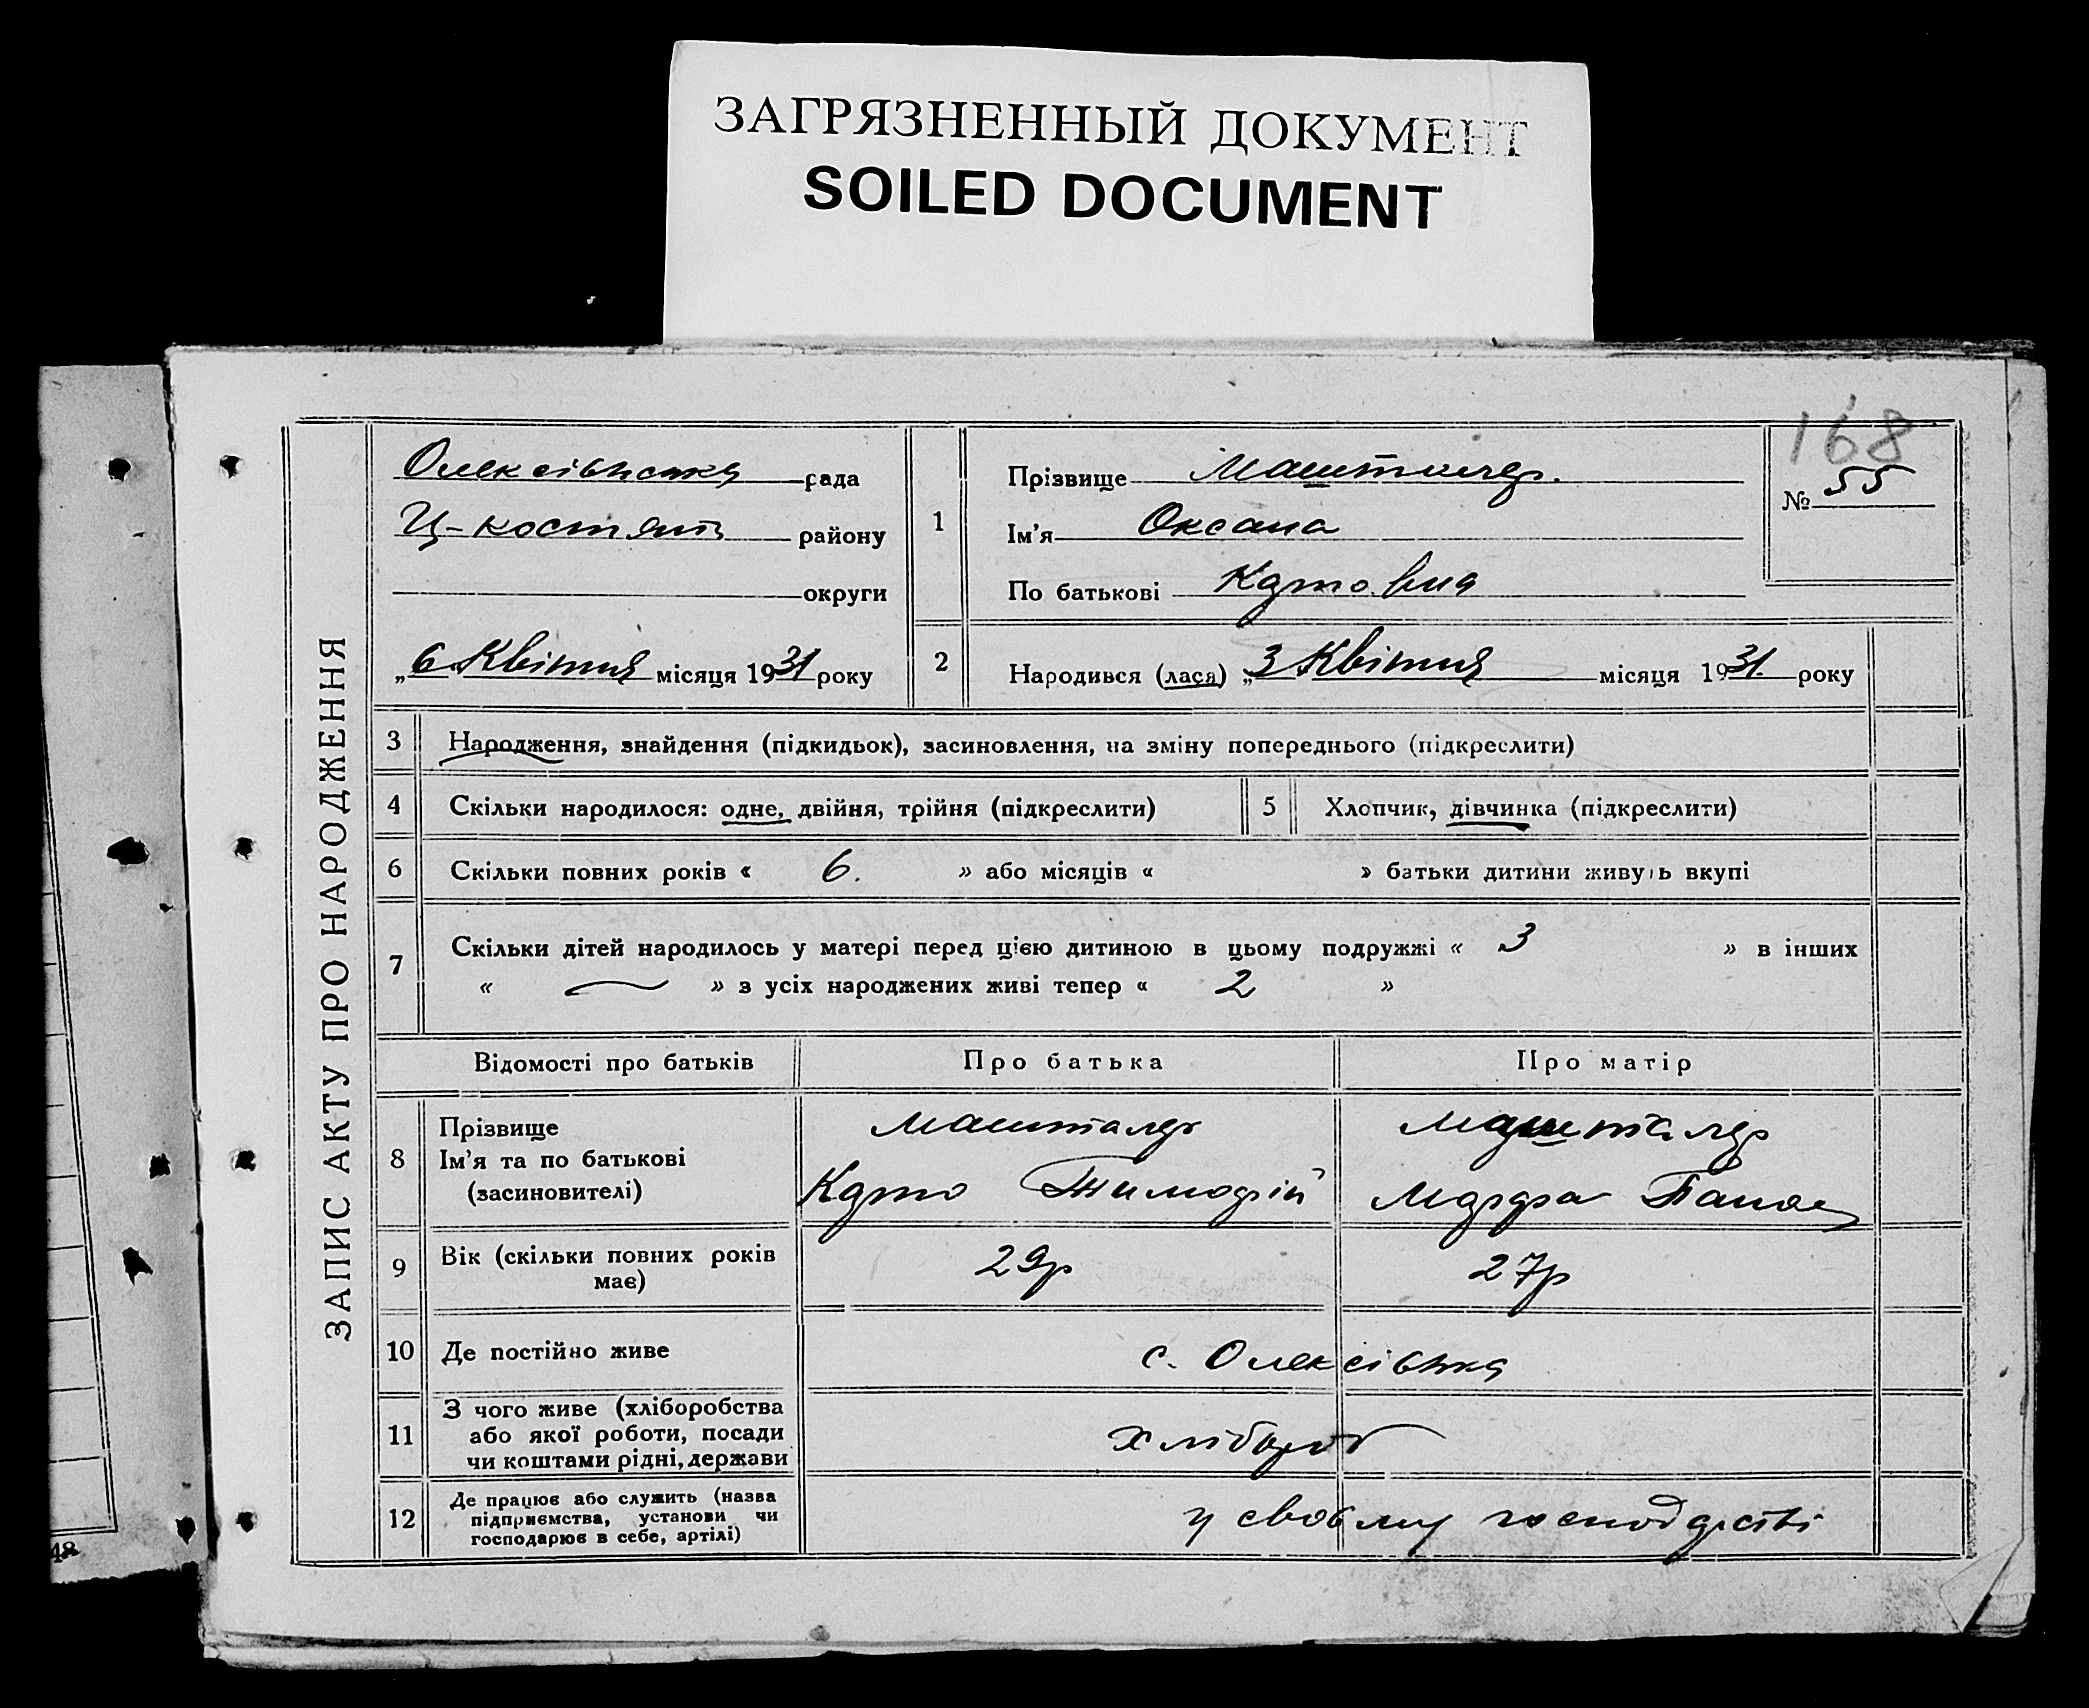 ЗАГРЯЗНЕННЫЙ ДОКУМЕНТ
SOILED DOCUMENT
168
ЗАПИС АКТУ ПРО НАРОДЖЕННЯ
Олексівська рада
Ц-костянт району
округи
„6 Квітня місяця 1931 року
1
Прізвище Машталер.
Ім'я Оксана
По батькові
№ 55
2
Народився (лася) „3 Квітня місяця 1931. року
3 Народження, знайдення (підкидьок), засиновлення, на зміну попереднього (підкреслити)
4 Скільки народилося: одне, двійня, трійня (підкреслити)
5 Хлопчик, дівчинка (підкреслити)
6 Скільки повних років « 6. » або місяців « » батьки дитини живуть вкупі
7 Скільки дітей народилось у матері перед цією дитиною в цьому подружжі « 3 » в інших
« — » з усіх народжених живі тепер « 2 »
Відомості про батьків Про батька Про матір
8 Прізвище
Ім'я та по батькові
(засиновителі)
Машталер
Тимофій
Машталер
Панас
9 Вік (скільки повних років
має)
29р
27р
10 Де постійно живе
с. Олексівка
11 З чого живе (хліборобства
або якої роботи, посади
чи коштами рідні, держави
хлібороб
12 Де працює або служить (назва
підприємства, установи чи
господарює в себе, артілі)
у своєму господарстві
48